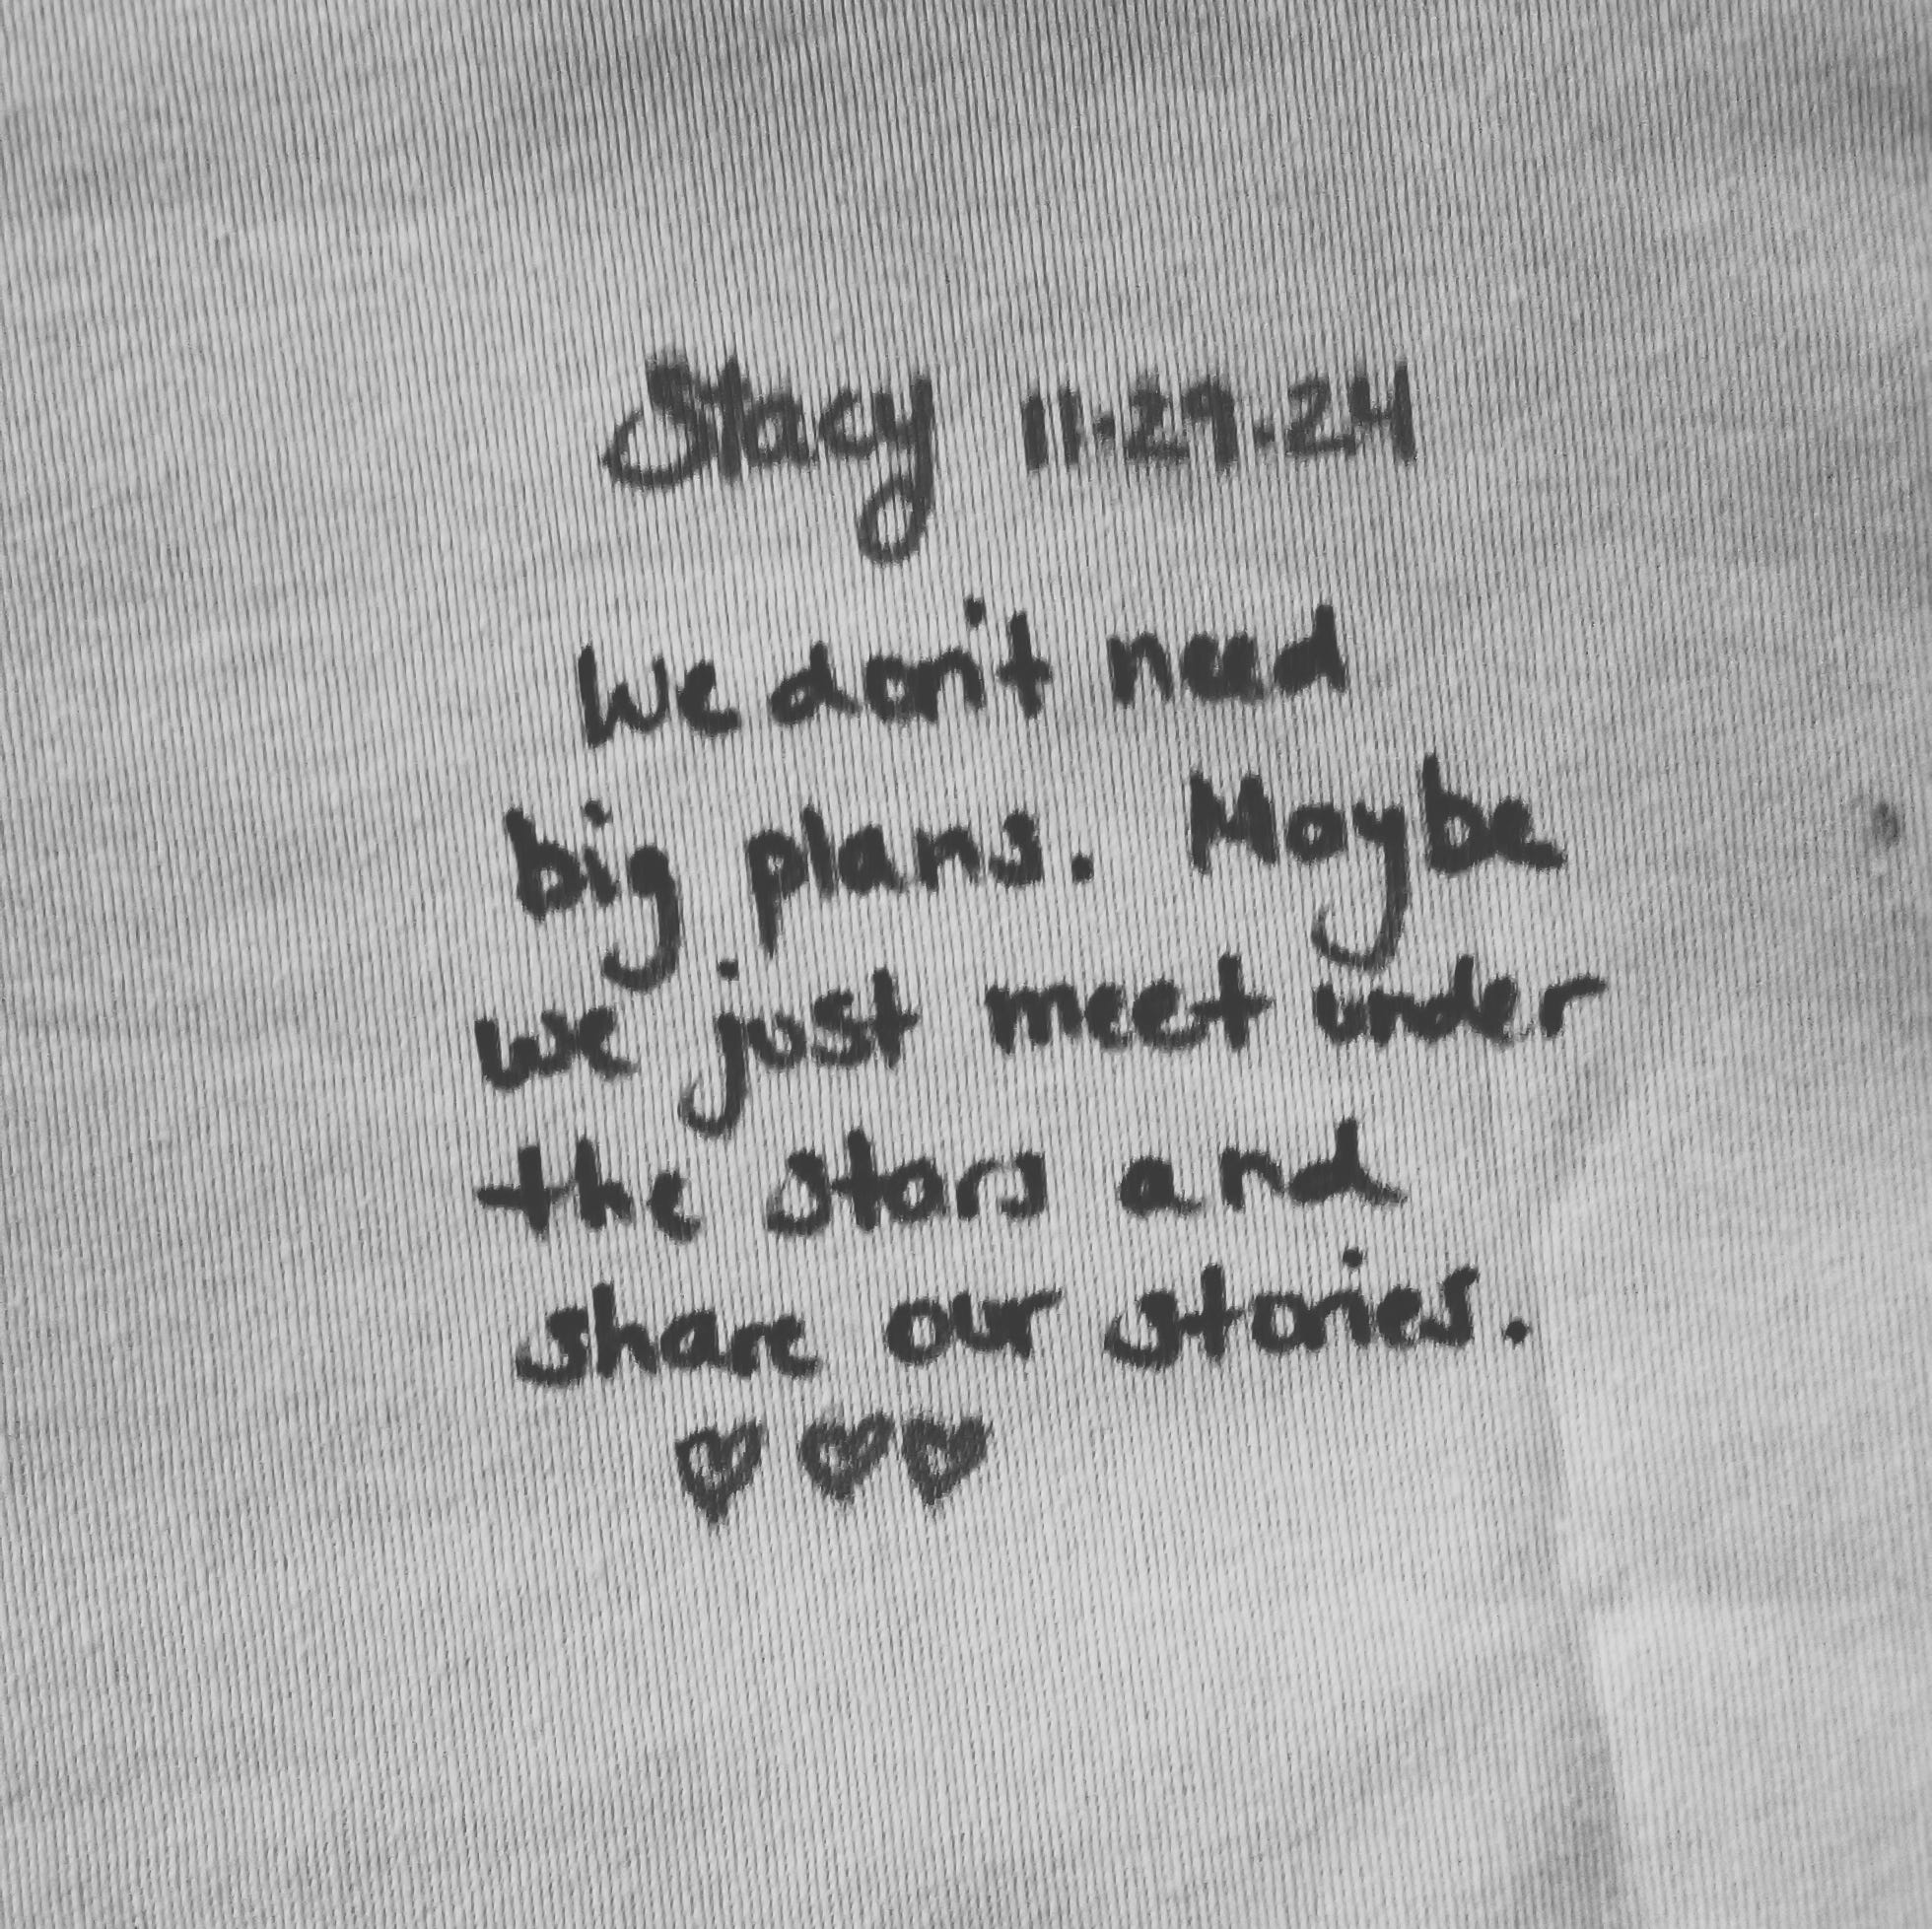 Stacy 11.29.24
We don't need
big plans. Maybe
we just meet under
the stars and
share our stories.
♡♡♡